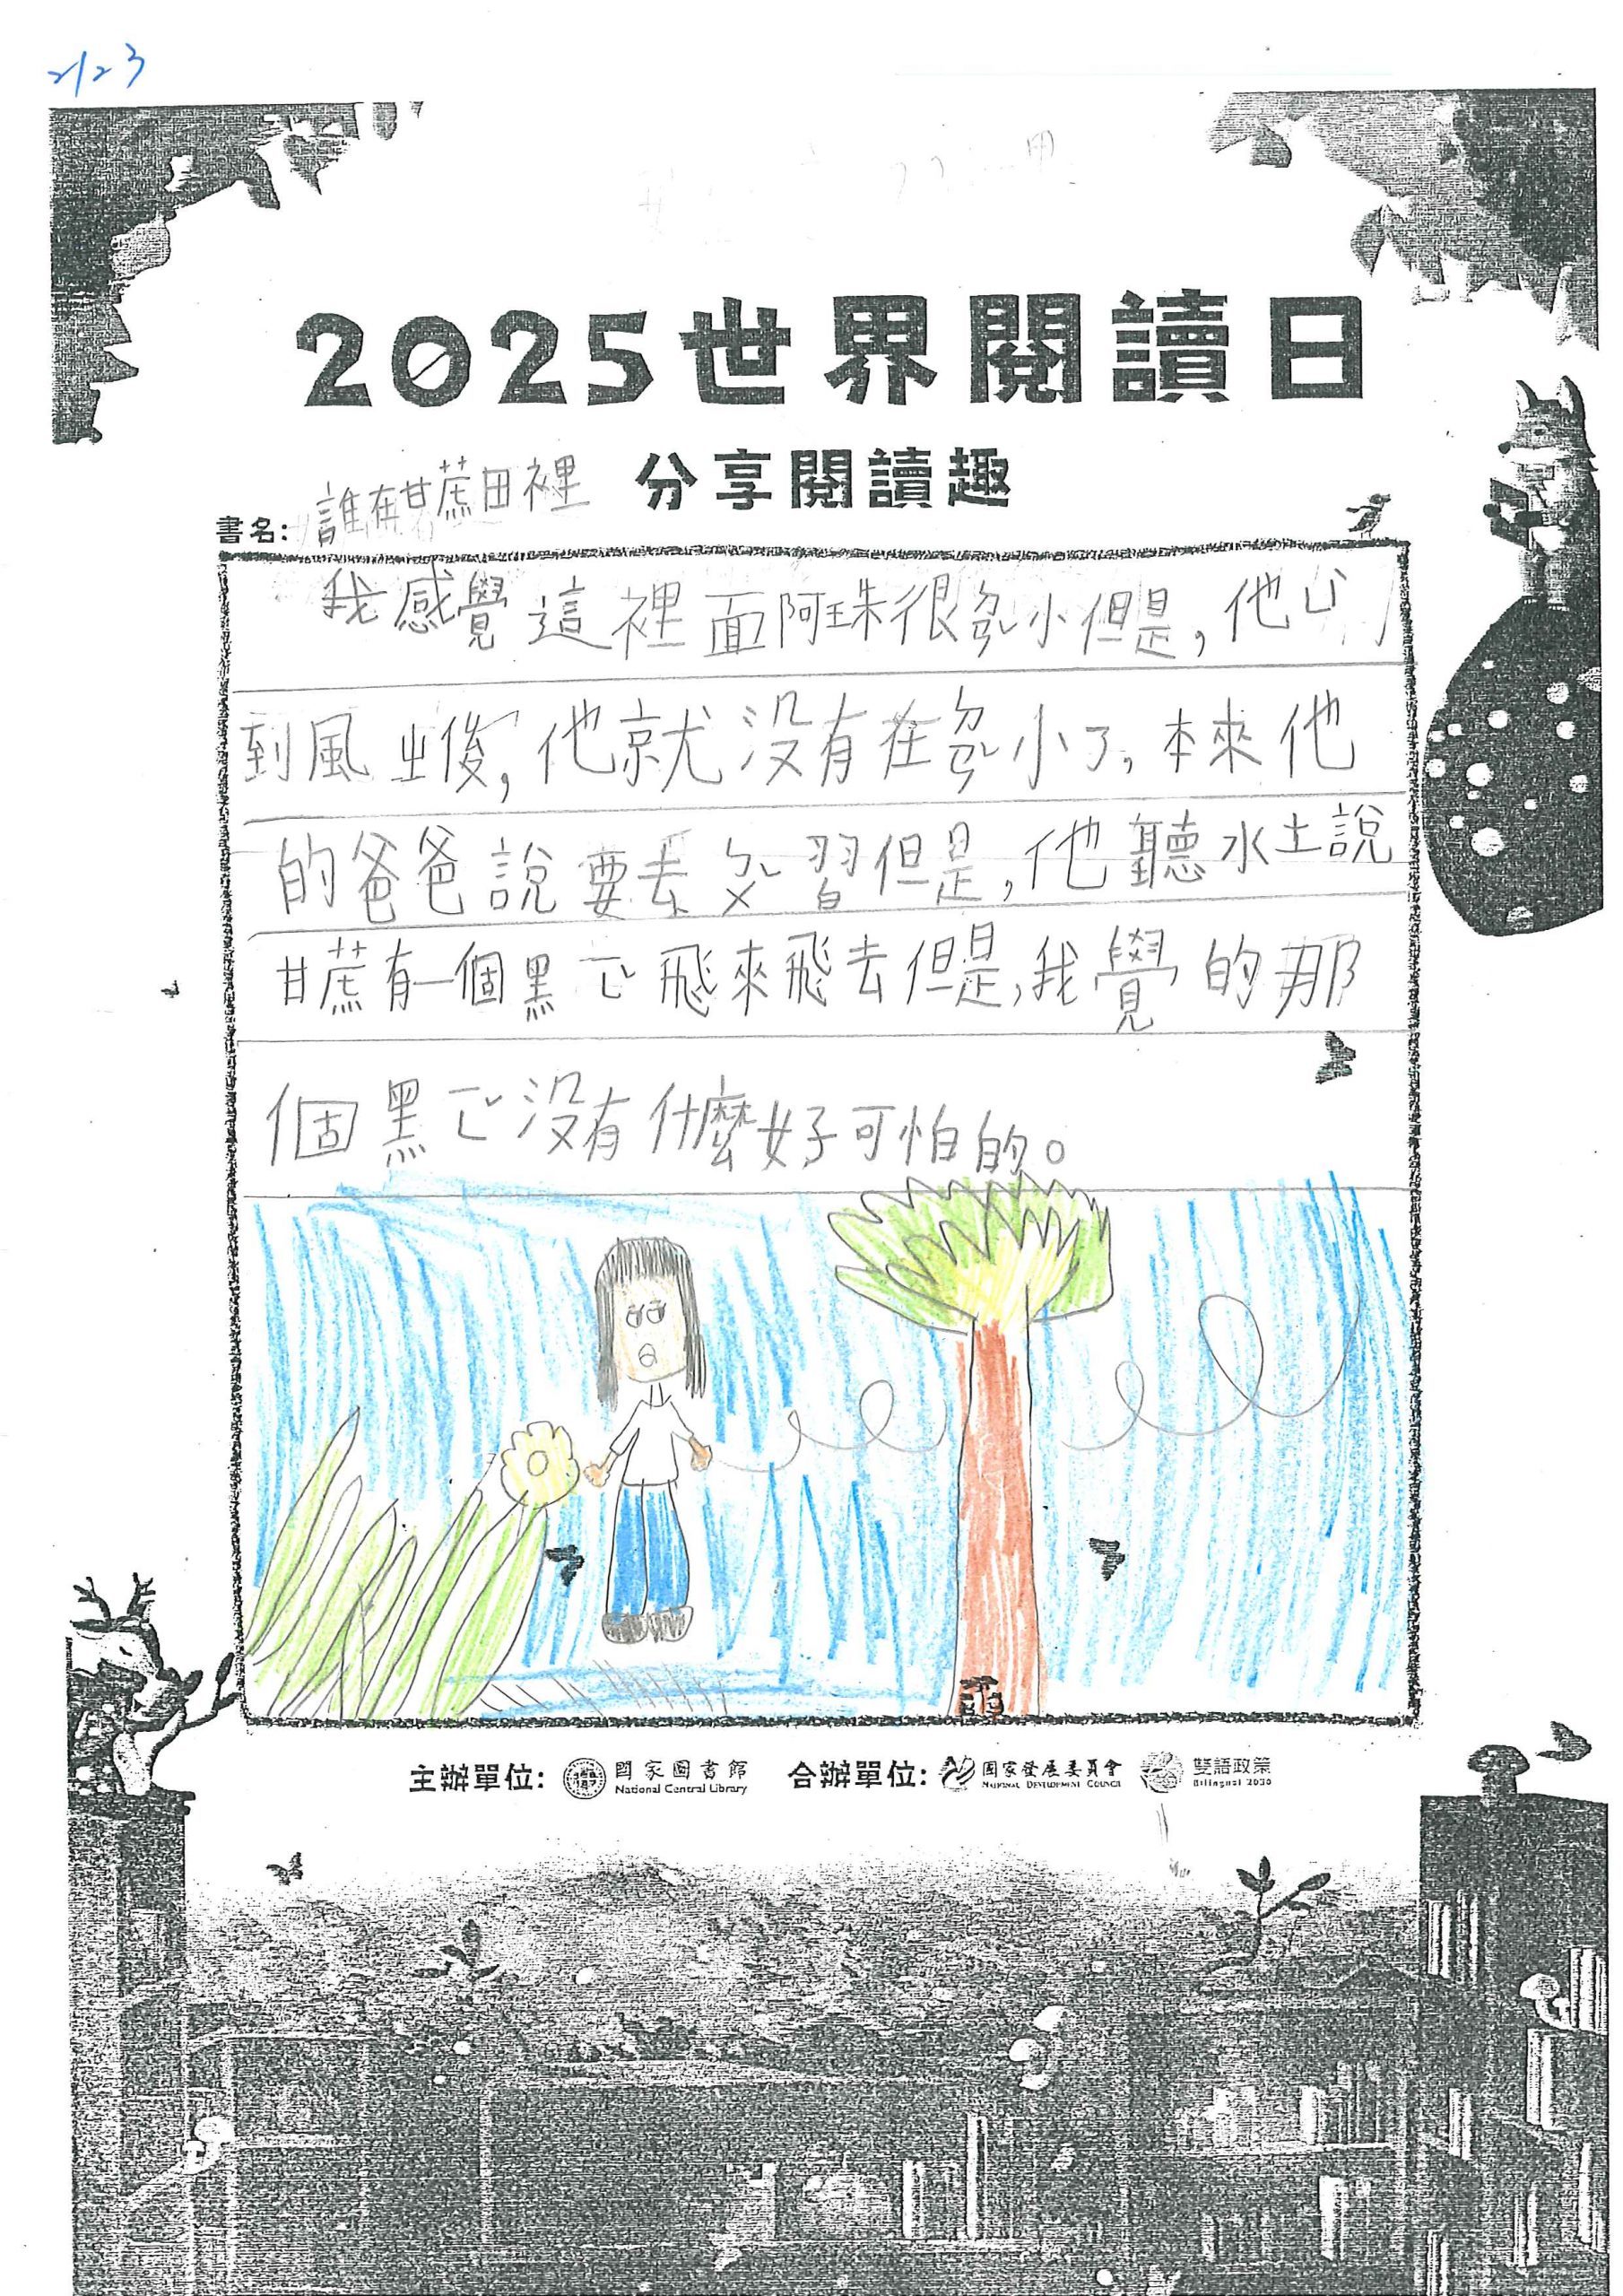 2123
2025世界閱讀日
分享閱讀趣
書名: 誰在甘蔗田裡
我感覺這裡面阿珠很ㄉㄢˇ小但是,他
到風ㄓ後,他就沒有在ㄉㄢˇ小了,本來他
的爸爸說要去ㄆㄨˇ習但是,他聽水土說
甘蔗有一個黑ㄛ飛來飛去但是,我覺的那
個黑ㄛ沒有什麼好可怕的。
主辦單位: 國家圖書館 合辦單位: 國家發展委員會 雙語政策
National Central Library National Development Council Bilingual 2030